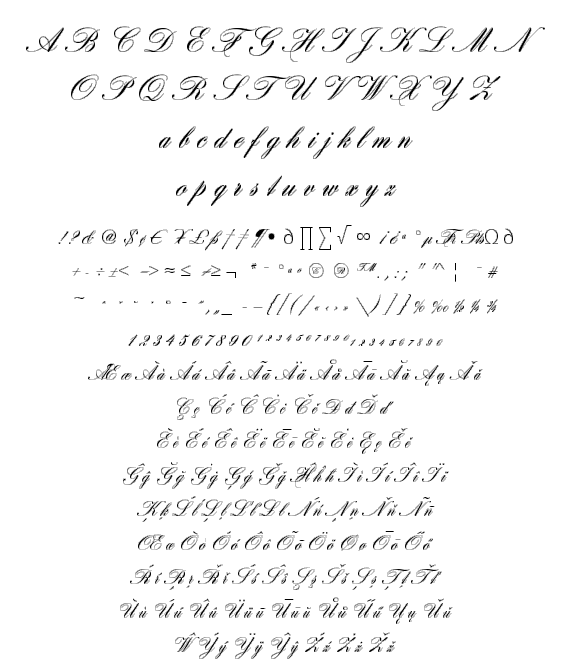 A B C D E F G H I J K L M N
O P Q R S T U V W X Y Z
a b c d e f g h i j k l m n
o p q r s t u v w x y z
! ? & @ $ ¢ € ¥ £ ß † ‡ ¶ • ∂ ∏ ∑ √ ∞ ¡ ¿ ª ° µ Ω ∂
+ - ÷ ± < ¬ > ≈ ≤ ≠ ≥ ¬ * ¨ ° « » © ® ™ . , : ; " " ^ ¦ ¯ #
{ [ ( / « ‹ › » \ ) ] } % ‰ ½ ¼ ¾
1 2 3 4 5 6 7 8 9 0 1 2 3 4 5 6 7 8 9 0 1 2 3 4 5 6 7 8 9 0
Æ æ À à Á á Â â Ã ã Ä ä Å å Ā ā Ă ă Ą ą Ǎ ǎ
Ç ç Ć ć Ĉ ĉ Ċ ċ Č č Ď ď
È è É é Ê ê Ë ë Ē ē Ĕ ĕ Ė ė Ę ę Ě ě
Ĝ ĝ Ğ ğ Ġ ġ Ǧ ǧ Ĥ ĥ Ì ì Í í Î î Ï ï
Ķ ķ Ĺ ĺ Ļ ļ Ľ ľ Ł ł Ń ń Ņ ņ Ň ň Ñ ñ
Œ œ Ò ò Ó ó Ô ô Õ õ Ö ö Ø ø Ō ō Ő ő
Ŕ ŕ Ŗ ŗ Ř ř Ś ś Ŝ ŝ Ş ş Š š Ș ș Ţ ţ Ť ť
Ù ù Ú ú Û û Ü ü Ū ū Ů ů Ű ű Ų ų Ǔ ǔ
Ŵ Ý ý Ÿ ÿ Ŷ ŷ Ź ź Ż ż Ž ž